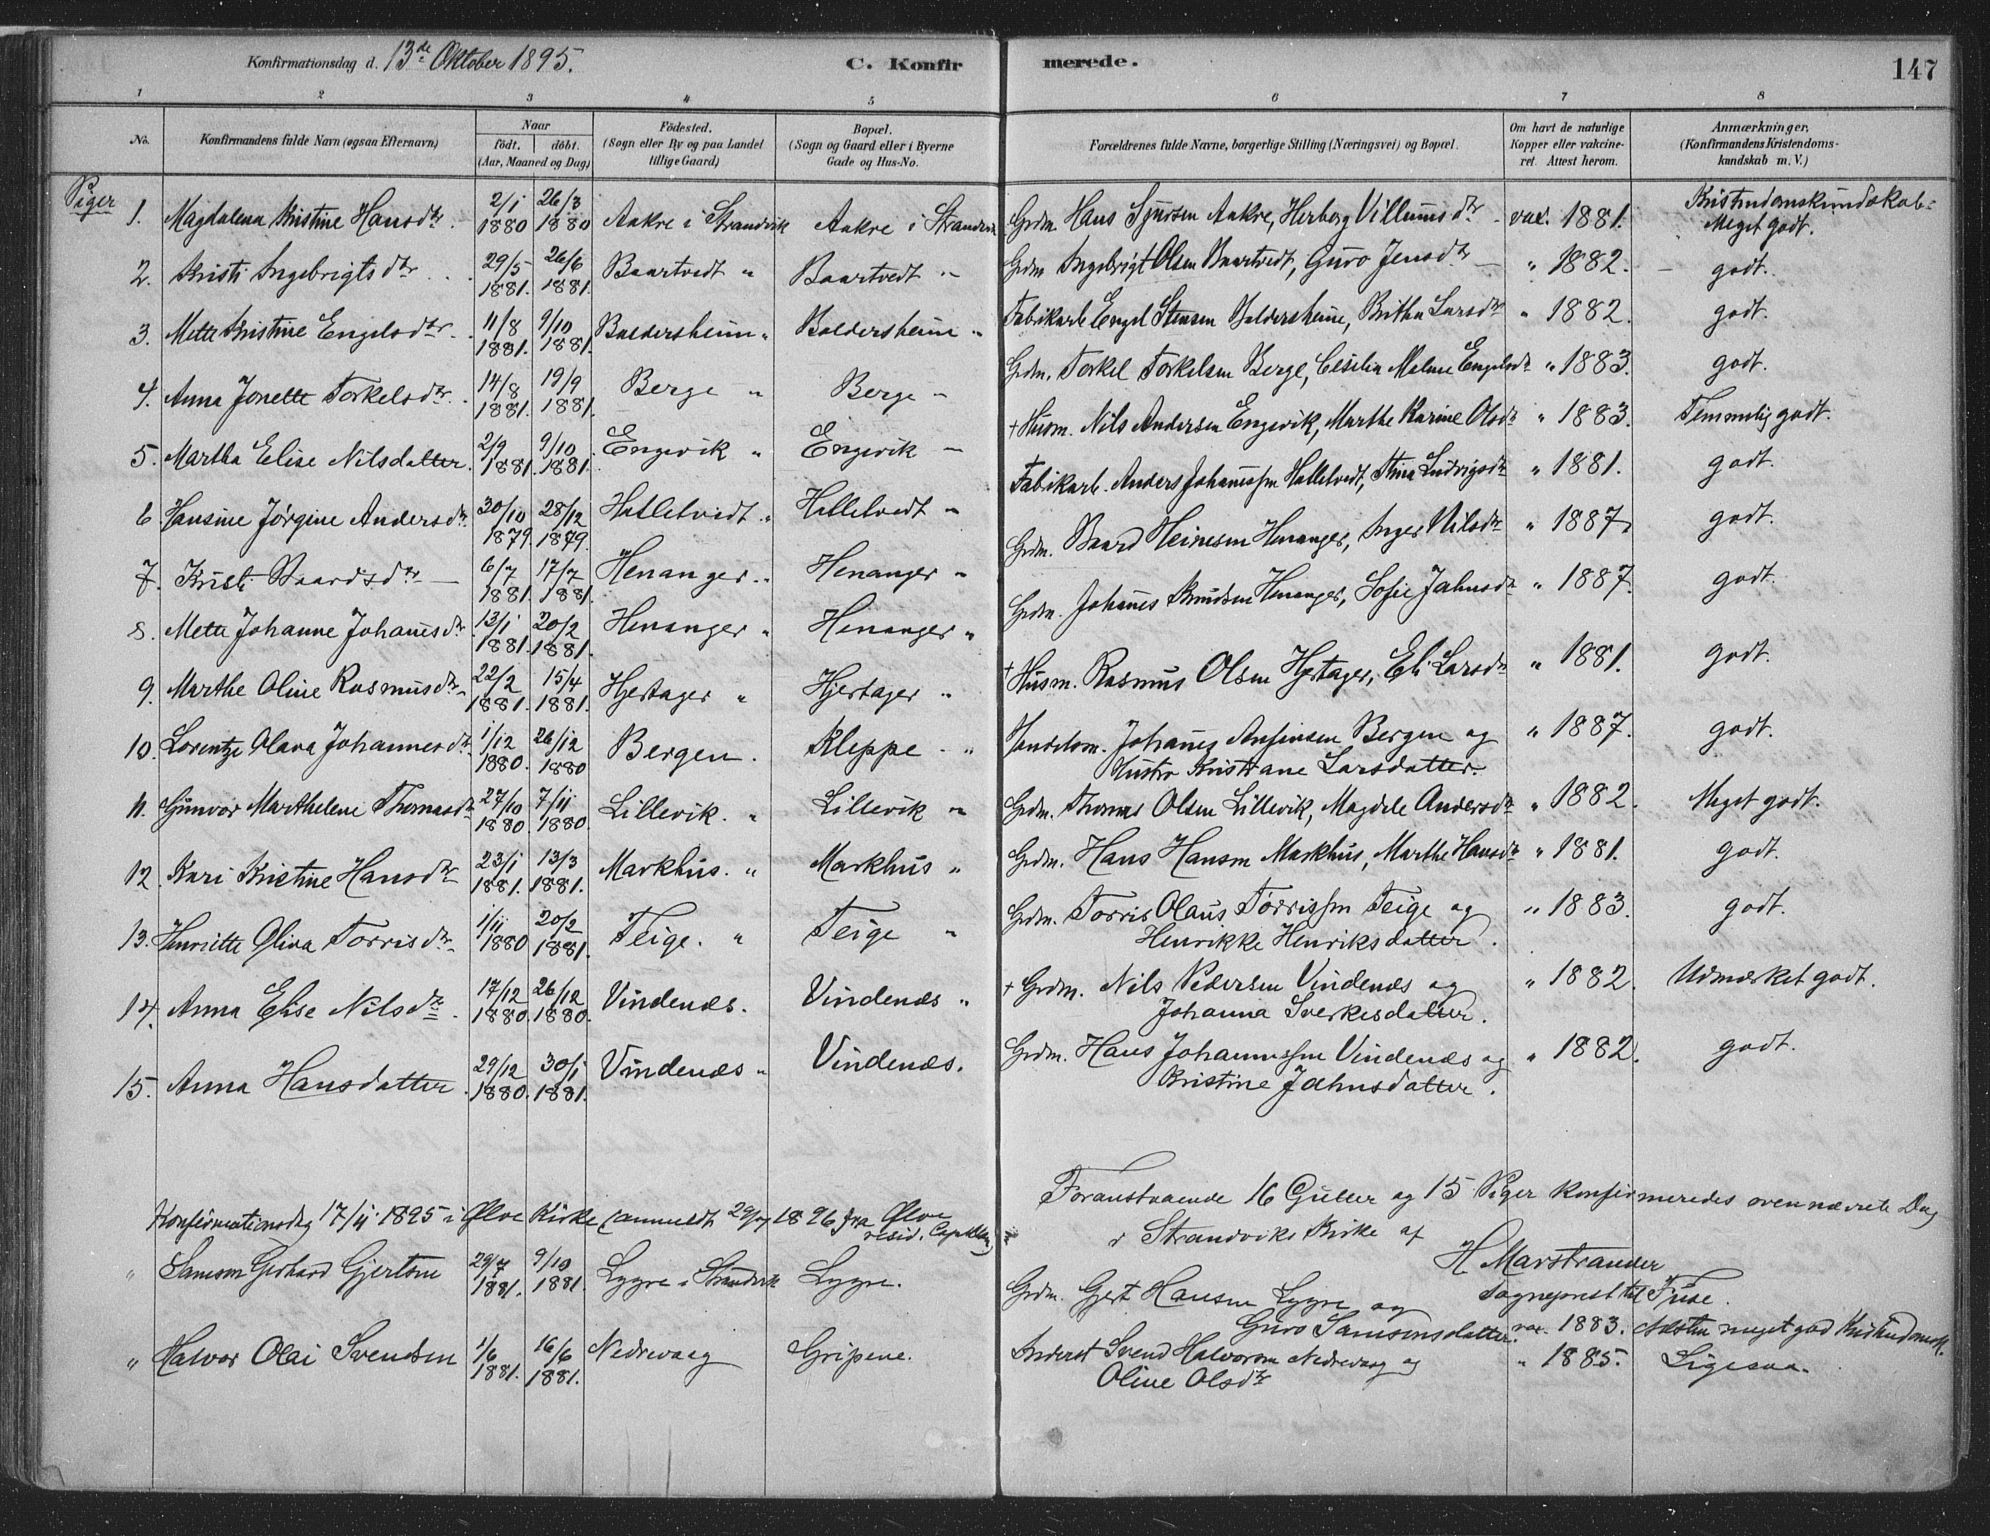 Konfirmationsdag d. 13de Oktober 1895. C. Konfirmerede. 147
1 2 3 4 5 6 7 8
No. Konfirmandens fulde Navn (ogsaa Efternavn) Naar födt. döbt. (Aar, Maaned og Dag) Födested. (Sogn eller By og paa Landet tillige Gaard) Bopæl. (Sogn og Gaard eller i Byerne Gade og Hus-No. Forældrenes fulde Navne, borgerlige Stilling (Næringsvei) og Bopæl. Om havt de naturlige Kopper eller vakcineret. Attest herom. Anmærkninger. (Konfirmandens Kristendomskundskab m. V.)
Piger
1. Magdalena Kristine Hansdtr. 2/1 1880 26/3 1880 Aakre i Strandvik Aakre i Strandvik Grdm. Hans Sjursen Aakre, Herborg Villumsdtr vax. 1881. Kristendomskundskab: Meget godt.
2. Kristi Ingebrigtsdtr 29/5 1881. 26/6 1881. Baartvedt " Baartvedt " Grdm Ingebrigt Olsen Baartvedt, Guro Jensdtr " 1882. godt.
3. Mette Kristine Engelsdtr. 11/8 1881. 9/10 1881. Baldersheim " Baldersheim " Fabrikarb Engel Stensen Baldersheim, Britha Larsdtr " 1882. godt.
4. Anna Jonette Torkelsdtr. 14/8 1881. 19/9 1881. Berge " Berge " Grdm. Torkel Torkelsen Berge, Cesilia Malene Engelsdtr " 1883. godt.
5. Martha Elise Nilsdatter. 2/9 1881. 9/10 1881. Engevik " Engevik " + Husm. Nils Andersen Engevik, Marthe Karine Olsdtr " 1883. Temmelig godt.
6 Hansine Jørgine Andersdtr. 30/10 1879. 28/12 1879. Hatletvedt " Hatletvedt " Fabikarb. Anders Johannessen Hatletvedt, Stina Ludvigsdtr " 1881. godt.
7. Kristi Baardsdtr 6/7 1881. 17/7 1881. Henanger " Henanger " Grdm. Baard Heinesen Henanger, Inger Nilsdtr " 1887. godt.
8. Mette Johanne Johannesdtr 13/1 1881. 20/2 1881. Henanger " Henanger " Grdm. Johannes Knudsen Henanger, Sofie Jahnsdtr " 1887. godt.
9. Marthe Oline Rasmusdtr 22/2 1881. 15/4 1881. Hjertager " Hjertager " + Husm. Rasmus Olsen Hjertager, Eli Larsdtr " 1881. godt.
10. Lorentze Olava Johannesdtr 1/12 1880. 26/12 1880 Bergen. Kleppe " Handelsm. Johannes Anfinsen Bergen og " 1887. godt.
Hustro Kristiane Larsdatter.
11. Gunvor Marthelene Thomasdtr 27/10 1880. 7/11 1880. Lillevik. " Lillevik " Grdm. Thomas Olsen Lillevik, Magdele Andersdtr " 1882. Meget godt.
12. Kari Kristine Hansdtr 23/1 1881. 13/3 1881. Markhus. " Markhus " Grdm. Hans Hansen Markhus, Marthe Hansdtr " 1881. godt.
13. Henriette Oliva Torrisdtr. 1/11 1880 20/2 1881. Teige. " Teige " Grdm. Torris Olaus Torrissen Teige og " 1883. godt.
Henrikke Henriksdatter.
14. Anna Elise Nilsdtr. 17/12 1880. 26/12 1880. Vindenæs. Vindenæs " + Grdm. Nils Pedersen Vindenæs og " 1882. Udmærket godt.
Johanna Sverkesdatter.
15. Anna Hansdatter 29/12 1880. 30/1 1881. Vindenæs " Vindenæs. Grdm. Hans Johannessen Vindenæs og " 1882. godt.
Kristine Jahnsdatter.
Foranstaaende 16 Gutter og 15 Piger konfirmeredes ovennævnte Dag
i Strandviks Kirke af
H Marstrander
Sogneprest til Fuse.
Konfirmationsdag 17/11 1895 i Ølve Kirke (anmeldt 29/7 1896 fra Ølve resid. Capellan)
" Samson Gerhard Gjertsen 29/7 1881. 9/10 1881. Lygre i Strandvik Lygre. Grdm. Gjert Hansen Lygre og
Guro Samsonsdatter. vax. 1883. Næsten meget god Kristendomsk.
" Halvor Olai Svendsen 1/6 1881. 16/6 1881. Nedrevaag Gripene. Inderst Svend Halvorsen Nedrevaag og " 1885. Ligesaa.
Oline Olsdtr